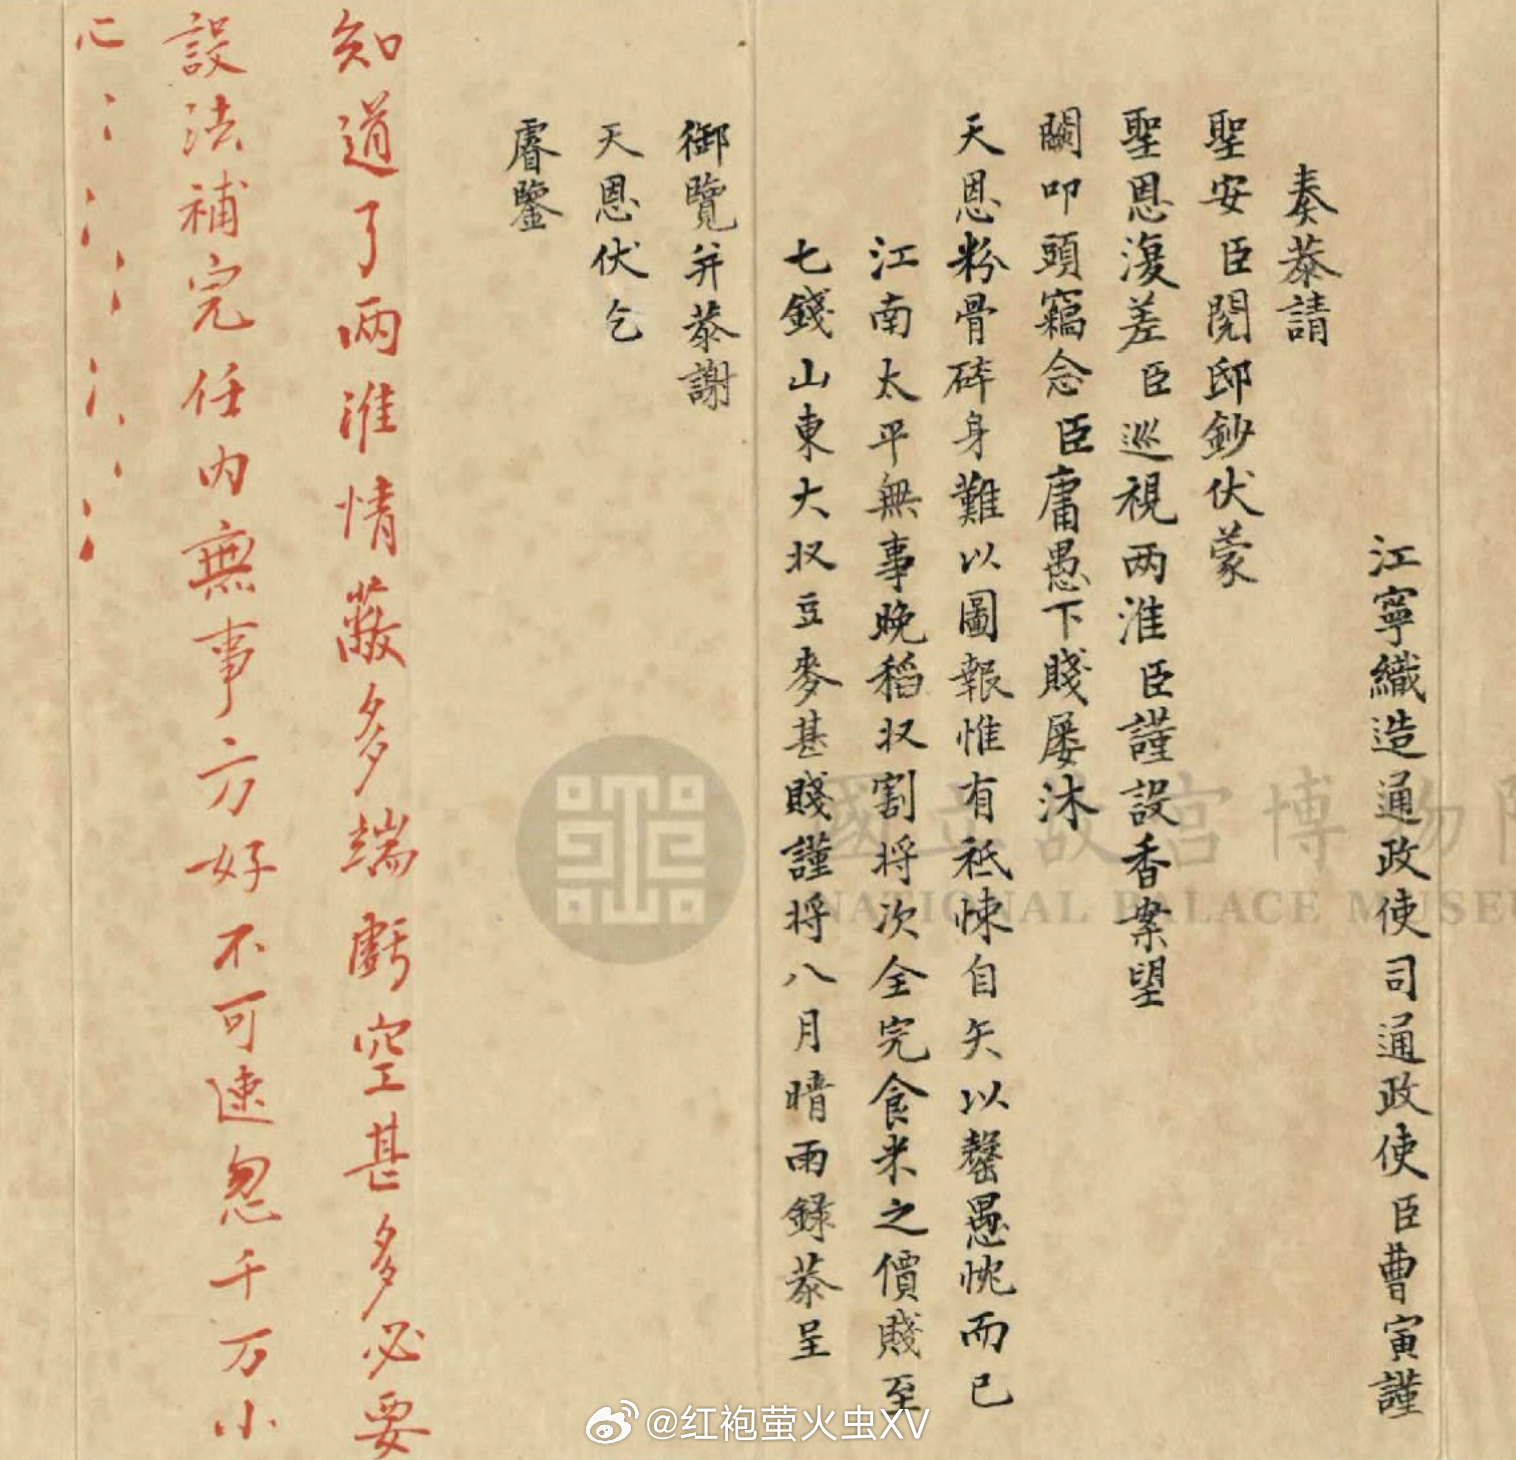 江寧織造通政使司通政使臣曹寅謹
奏恭請
聖安臣閱邸鈔伏蒙
聖恩復差臣巡視两淮臣謹設香案望
闕叩頭竊念臣庸愚下賤屢沐
天恩粉骨碎身難以圖報惟有祗悚自矢以罄愚忱而已
江南太平無事晚稻收割将次全完食米之價賤至
七錢山東大收豆麥甚賤謹将八月晴雨錄恭呈
御覽并恭謝
天恩伏乞
睿鑒
知道了两淮情蔽多端虧空甚多必要
設法補完任内無事方好不可疎忽千万小
心丶丶丶丶丶丶丶丶
國立故宮博物院
NATIONAL PALACE MUSEU
@红袍萤火虫XV